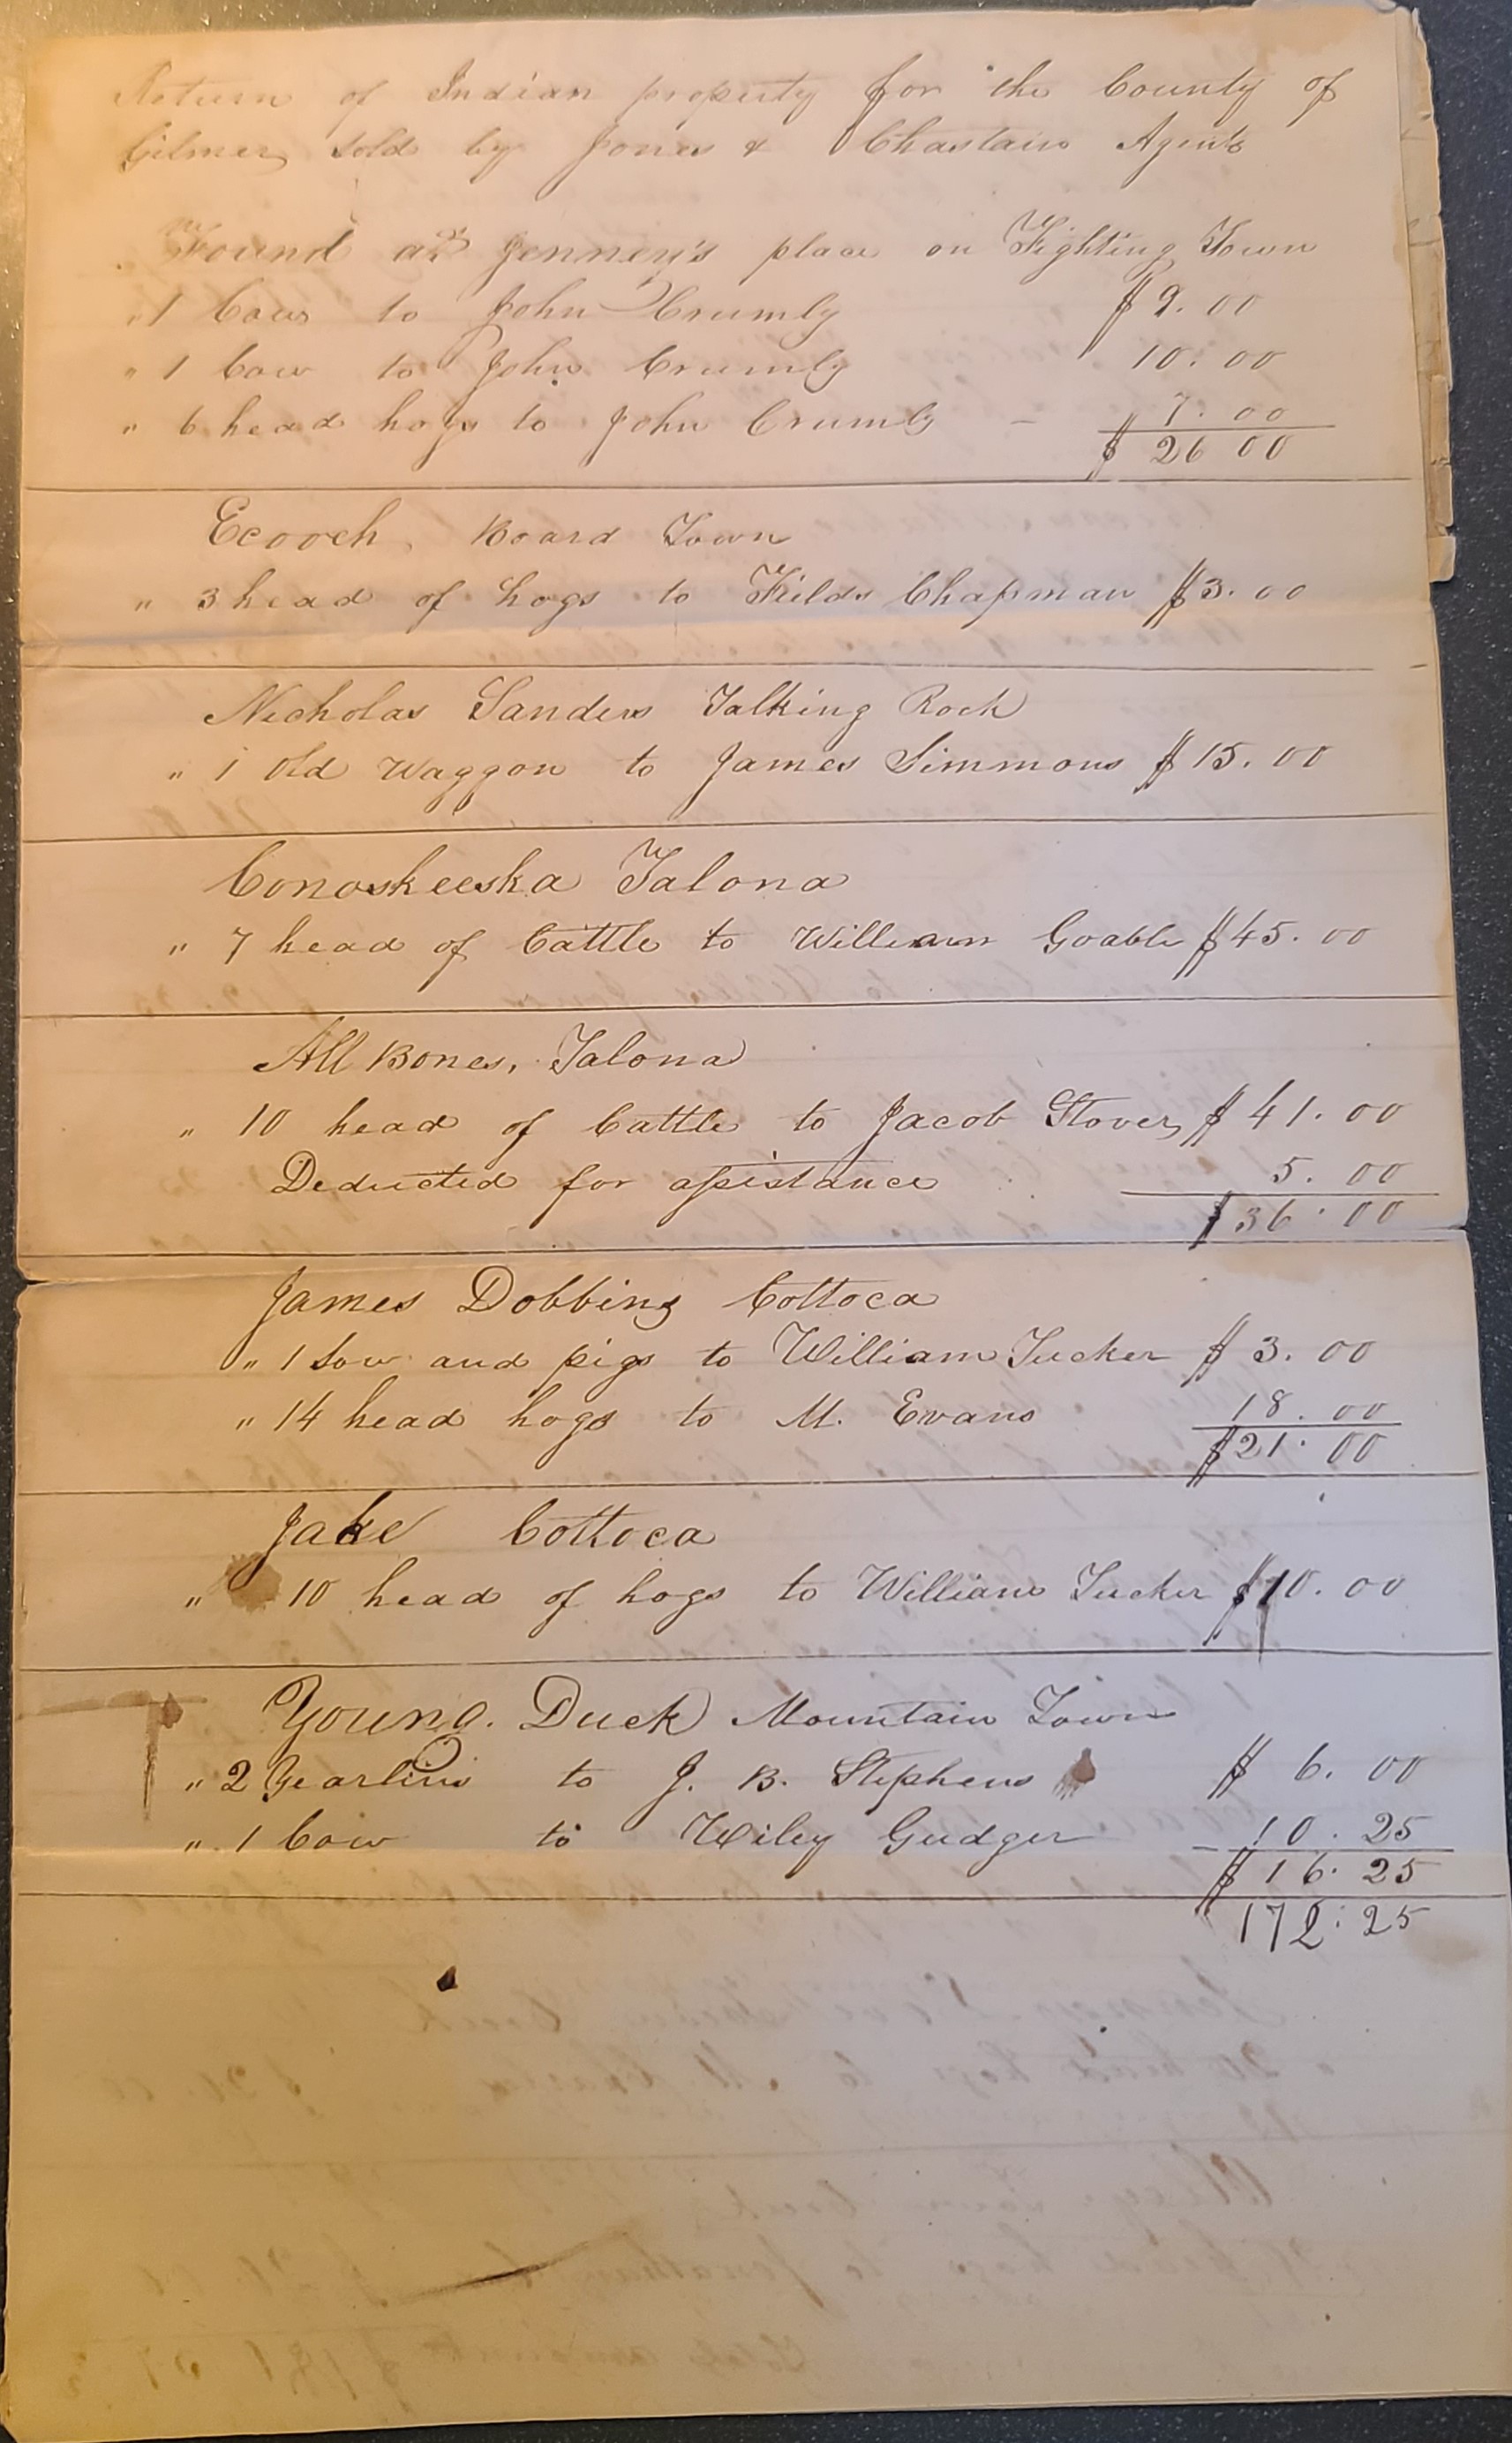 Return of Indian property for the County of
Gilmer sold by Jones & Chastain Agents
Found at Jenney's place on Fighting Town
" 1 Cow to John Crumly $9.00
" 1 Cow to John Crumly 10.00
" 6 head hogs to John Crumly - 7.00
$26 00
Ecooch, Board Town
" 3 head of hogs to Feilds Chapman $3.00
Nicholas Sanders Talking Rock
" 1 Old Waggon to James Simmons $15.00
Conoskeeska Talona
" 7 head of Cattle to William Goable $45.00
All Bones, Talona
" 10 head of Cattle to Jacob Stover $41.00
Deducted for assistance 5.00
$36.00
James Dobbing Cottoca
" 1 Sow and pigs to William Tucker $3.00
" 14 head hogs to M. Evans 18.00
$21.00
Jake Cottoca
" 10 head of hogs to William Tucker $10.00
Young Duck Mountain Town
" 2 Yearlins to J. B. Stephens $6.00
" 1 Cow to Wiley Gudger 10.25
$16.25
172.25